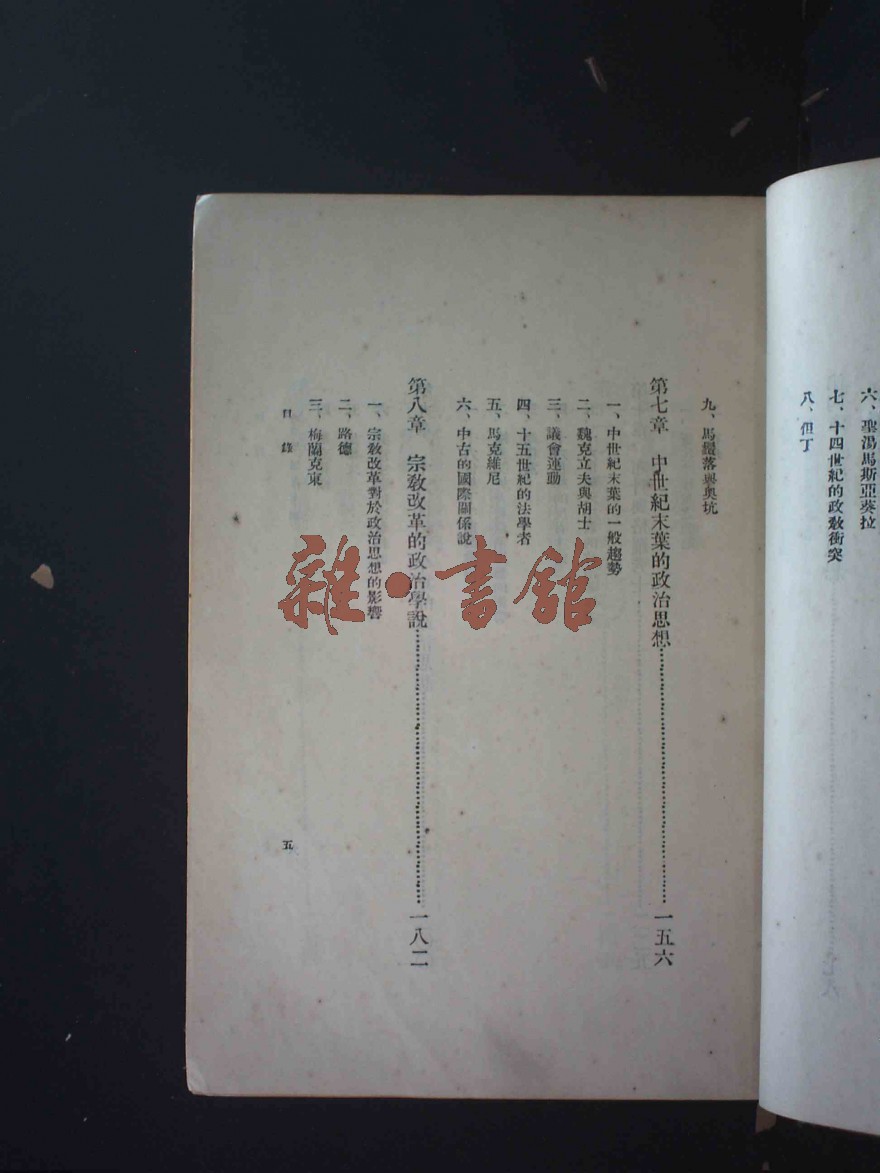 六、聖湯馬斯亞葵拉
七、十四世紀的政教衝突
八、但丁
九、馬鐚落與奧坑
第七章 中世紀末葉的政治思想……一五六
一、中世紀末葉的一般趨勢
二、魏克立夫與胡士
三、議會運動
四、十五世紀的法學者
五、馬克維尼
六、中古的國際關係說
第八章 宗教改革的政治學說……一八二
一、宗教改革對於政治思想的影響
二、路德
三、梅蘭克東
目錄
五
雜·書館